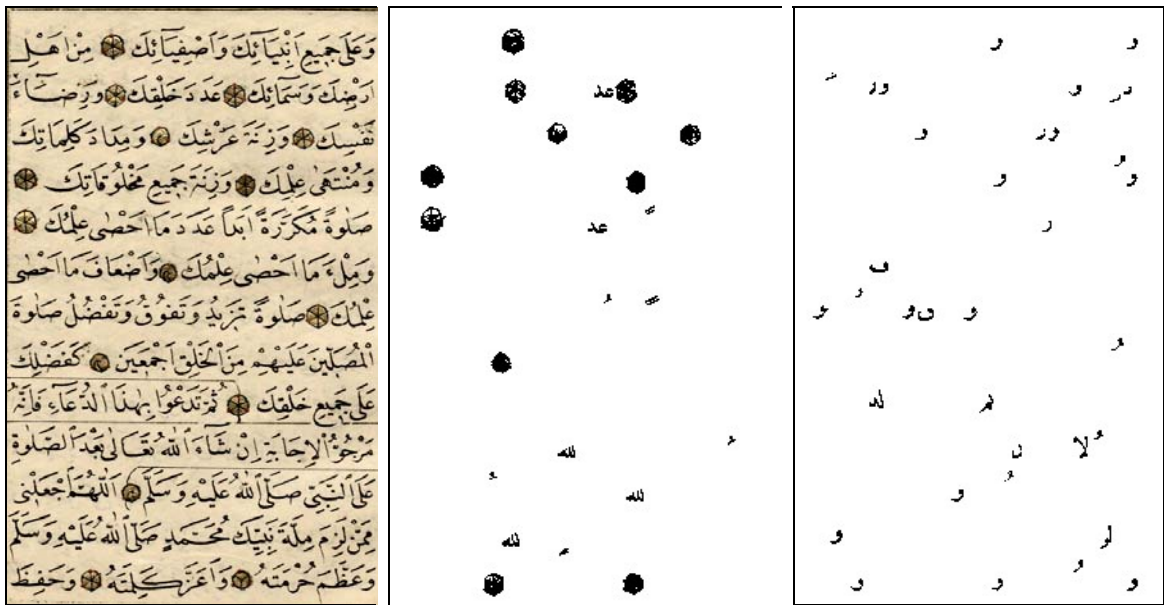 وَعَلَى جَمِيعِ اَنْبِيَآئِكَ وَاَصْفِيَآئِكَ مِنْ اَهْلِ
اَرْضِكَ وَسَمَآئِكَ عَدَدَ خَلْقِكَ وَرِضَآءَ
نَفْسِكَ وَزِنَةَ عَرْشِكَ وَمِدَادَ كَلِمَاتِكَ
وَمُنْتَهٰى عِلْمِكَ وَزِنَةَ جَمِيعِ مَخْلُوقَاتِكَ
صَلٰوةً مُكَرَّرَةً اَبَداً عَدَدَ مَا اَحْصٰى عِلْمُكَ
وَمِلْءَ مَا اَحْصٰى عِلْمُكَ وَاَضْعَافَ مَا اَحْصٰى
عِلْمُكَ صَلٰوةً تَزِيدُ وَتَفُوقُ وَتَفْضُلُ صَلٰوةَ
الْمُصَلِّينَ عَلَيْهِمْ مِنَ الْخَلْقِ اَجْمَعِينَ كَفَضْلِكَ
عَلَى جَمِيعِ خَلْقِكَ ثُمَّ تَدْعُوا بِهٰذَا الدُّعَآءِ فَاِنَّهُ
مَرْجُوُّ الْاِجَابَةِ اِنْ شَآءَ اللهُ تَعَالٰى بَعْدَ الصَّلٰوةِ
عَلَى النَّبِيِّ صَلَّى اللهُ عَلَيْهِ وَسَلَّمَ اَللّٰهُمَّ اجْعَلْنِى
مِمَّنْ لَزِمَ مِلَّةَ نَبِيِّكَ مُحَمَّدٍ صَلَّى اللهُ عَلَيْهِ وَسَلَّمَ
وَعَظَّمَ حُرْمَتَهُ وَاَعَزَّ كَلِمَتَهُ وَحَفِظَ